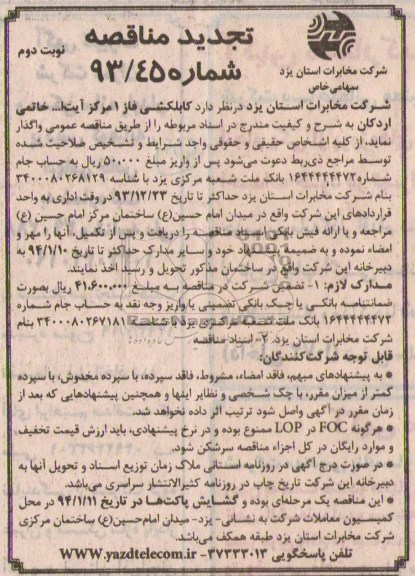 تجدید مناقصه
نوبت دوم
شماره ۹۳/۴۵
شرکت مخابرات استان یزد
سهامی خاص
شرکت مخابرات استان یزد درنظر دارد کابلکشی فاز ۱ مرکز آیت‌ا... خاتمی
اردکان به شرح و کیفیت مندرج در اسناد مربوطه را از طریق مناقصه عمومی واگذار
نماید، از کلیه اشخاص حقیقی و حقوقی واجد شرایط و تشخیص صلاحیت شده
توسط مراجع ذی‌ربط دعوت می‌شود پس از واریز مبلغ ۵۰،۰۰۰ ریال به حساب جام
شماره ۱۶۴۴۴۴۴۴۷۲ بانک ملت شعبه مرکزی یزد با شناسه ۳۴۰۰۰۸۰۲۶۸۱۲۹
بنام شرکت مخابرات استان یزد حداکثر تا تاریخ ۹۳/۱۲/۲۳ در وقت اداری به واحد
قراردادهای این شرکت واقع در میدان امام حسین(ع) ساختمان مرکز امام حسین (ع)
مراجعه و با ارائه فیش بانکی اسناد مناقصه را دریافت و پس از تکمیل، آنها را مهر و
امضاء نموده و به ضمیمه پیشنهاد خود و سایر مدارک حداکثر تا تاریخ ۹۴/۱/۱۰ به
دبیرخانه این شرکت واقع در ساختمان مذکور تحویل و رسید اخذ نمایند.
مدارک لازم: ۱- تضمین شرکت در مناقصه به مبلغ ۴۱،۶۰۰،۰۰۰ ریال بصورت
ضمانتنامه بانکی یا چک بانکی تضمینی یا واریز وجه نقد به حساب جام شماره
۱۶۴۴۴۴۴۴۷۳ بانک ملت شعبه مرکزی یزد با شناسه ۳۴۰۰۰۸۰۲۶۷۱۸۱ بنام
شرکت مخابرات استان یزد. ۲- اسناد مناقصه
قابل توجه شرکت‌کنندگان:
● به پیشنهادهای مبهم، فاقد امضاء، مشروط، فاقد سپرده، با سپرده مخدوش، با سپرده
کمتر از میزان مقرر، با چک شخصی و نظایر اینها و همچنین پیشنهادهایی که بعد از
زمان مقرر در آگهی واصل شود ترتیب اثر داده نخواهد شد.
● هرگونه FOC در LOP ممنوع بوده و در نرخ پیشنهادی، باید ارزش قیمت تخفیف
و موارد رایگان در کل اجزاء مناقصه سرشکن شود.
● در صورت درج آگهی در روزنامه استانی ملاک زمان توزیع اسناد و تحویل آنها به
دبیرخانه این شرکت تاریخ چاپ در روزنامه کثیرالانتشار سراسری می‌باشد.
● این مناقصه یک مرحله‌ای بوده و گشایش پاکت‌ها در تاریخ ۹۴/۱/۱۱ در محل
کمیسیون معاملات شرکت به نشانی- یزد- میدان امام‌حسین(ع) ساختمان مرکزی
شرکت مخابرات استان یزد طبقه همکف می‌باشد.
تلفن پاسخگویی ۳۷۲۳۳۰۱۳- WWW.yazdtelecom.ir